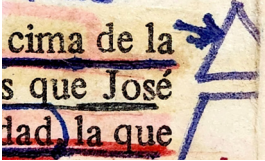 cima de la
s que José
dad, la que